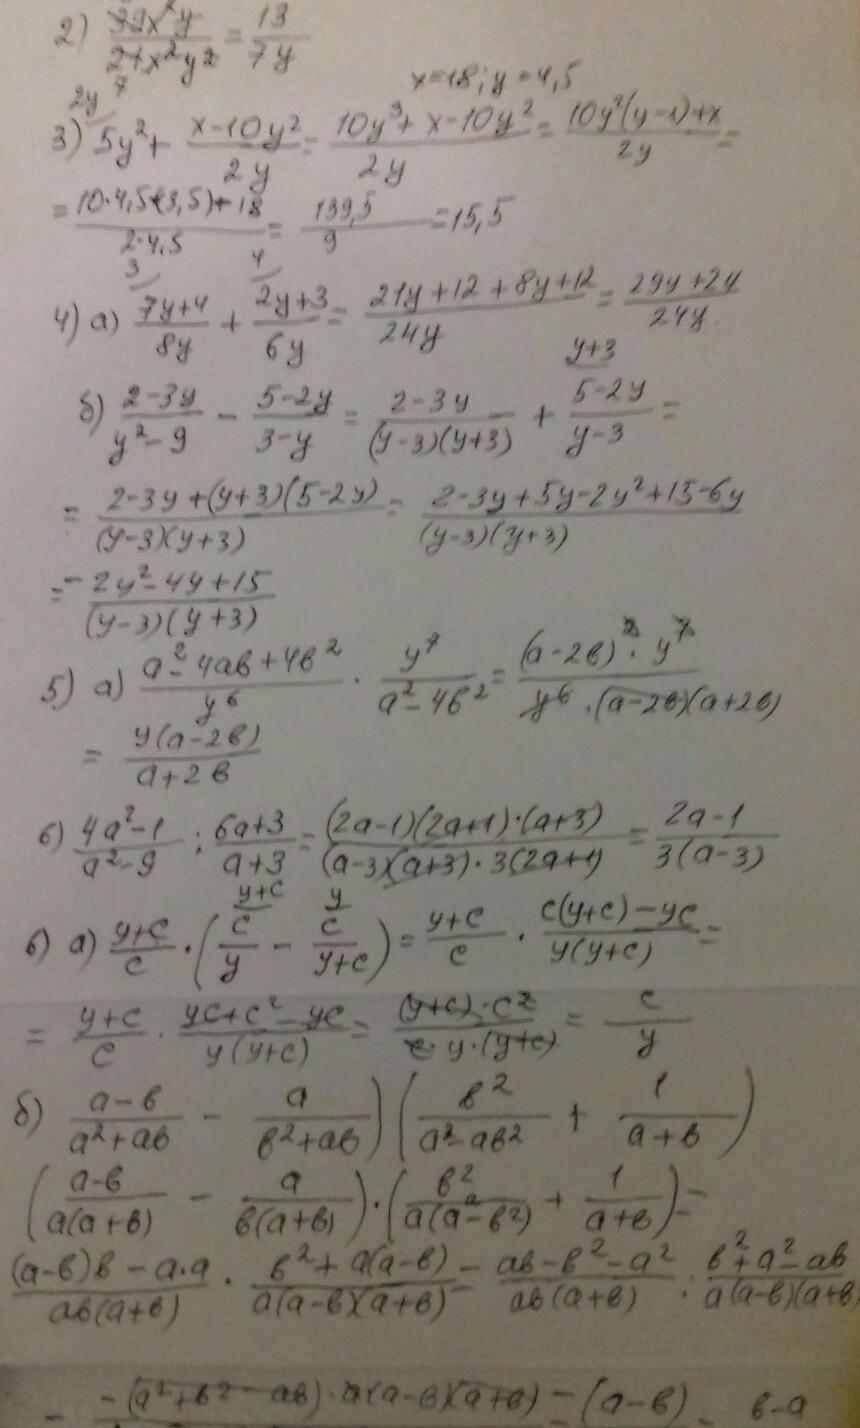 2) 39x²y/21x²y² = 13/7y
7
x=18; y=4,5
2y
3) 5y² + (x-10y²)/2y = (10y³+x-10y²)/2y = (10y²(y-1)+x)/2y =
= (10·4,5·(3,5)+18)/(2·4,5) = 139,5/9 = 15,5
3 4
4) а) (7y+4)/8y + (2y+3)/6y = (21y+12+8y+12)/24y = (29y+24)/24y
y+3
б) (2-3y)/(y²-9) - (5-2y)/(3-y) = (2-3y)/((y-3)(y+3)) + (5-2y)/(y-3) =
= (2-3y+(y+3)(5-2y))/((y-3)(y+3)) = (2-3y+5y-2y²+15-6y)/((y-3)(y+3))
= (-2y²-4y+15)/((y-3)(y+3))
5) а) (a²-4ab+4b²)/y⁶ · y⁷/(a²-4b²) = ((a-2b)²·y⁷)/(y⁶·(a-2b)(a+2b))
= y(a-2b)/(a+2b)
б) (4a²-1)/(a²-9) : (6a+3)/(a+3) = ((2a-1)(2a+1)·(a+3))/((a-3)(a+3)·3(2a+1)) = (2a-1)/(3(a-3))
y+c y
6) а) (y+c)/c · (c/y - c/(y+c)) = (y+c)/c · (c(y+c)-yc)/(y(y+c)) =
= (y+c)/c · (yc+c²-yc)/(y(y+c)) = ((y+c)·c²)/(c·y·(y+c)) = c/y
б) (a-b)/(a²+ab) - a/(b²+ab)) (b²/(a³-ab²) + 1/(a+b))
((a-b)/(a(a+b)) - a/(b(a+b))) · (b²/(a(a²-b²)) + 1/(a+b)) =
((a-b)b-a·a)/(ab(a+b)) · (b²+a(a-b))/(a(a-b)(a+b)) = (ab-b²-a²)/(ab(a+b)) : (b²+a²-ab)/(a(a-b)(a+b))
= -(a²+b²-ab)·a(a-b)(a+b) = -(a-b) = b-a